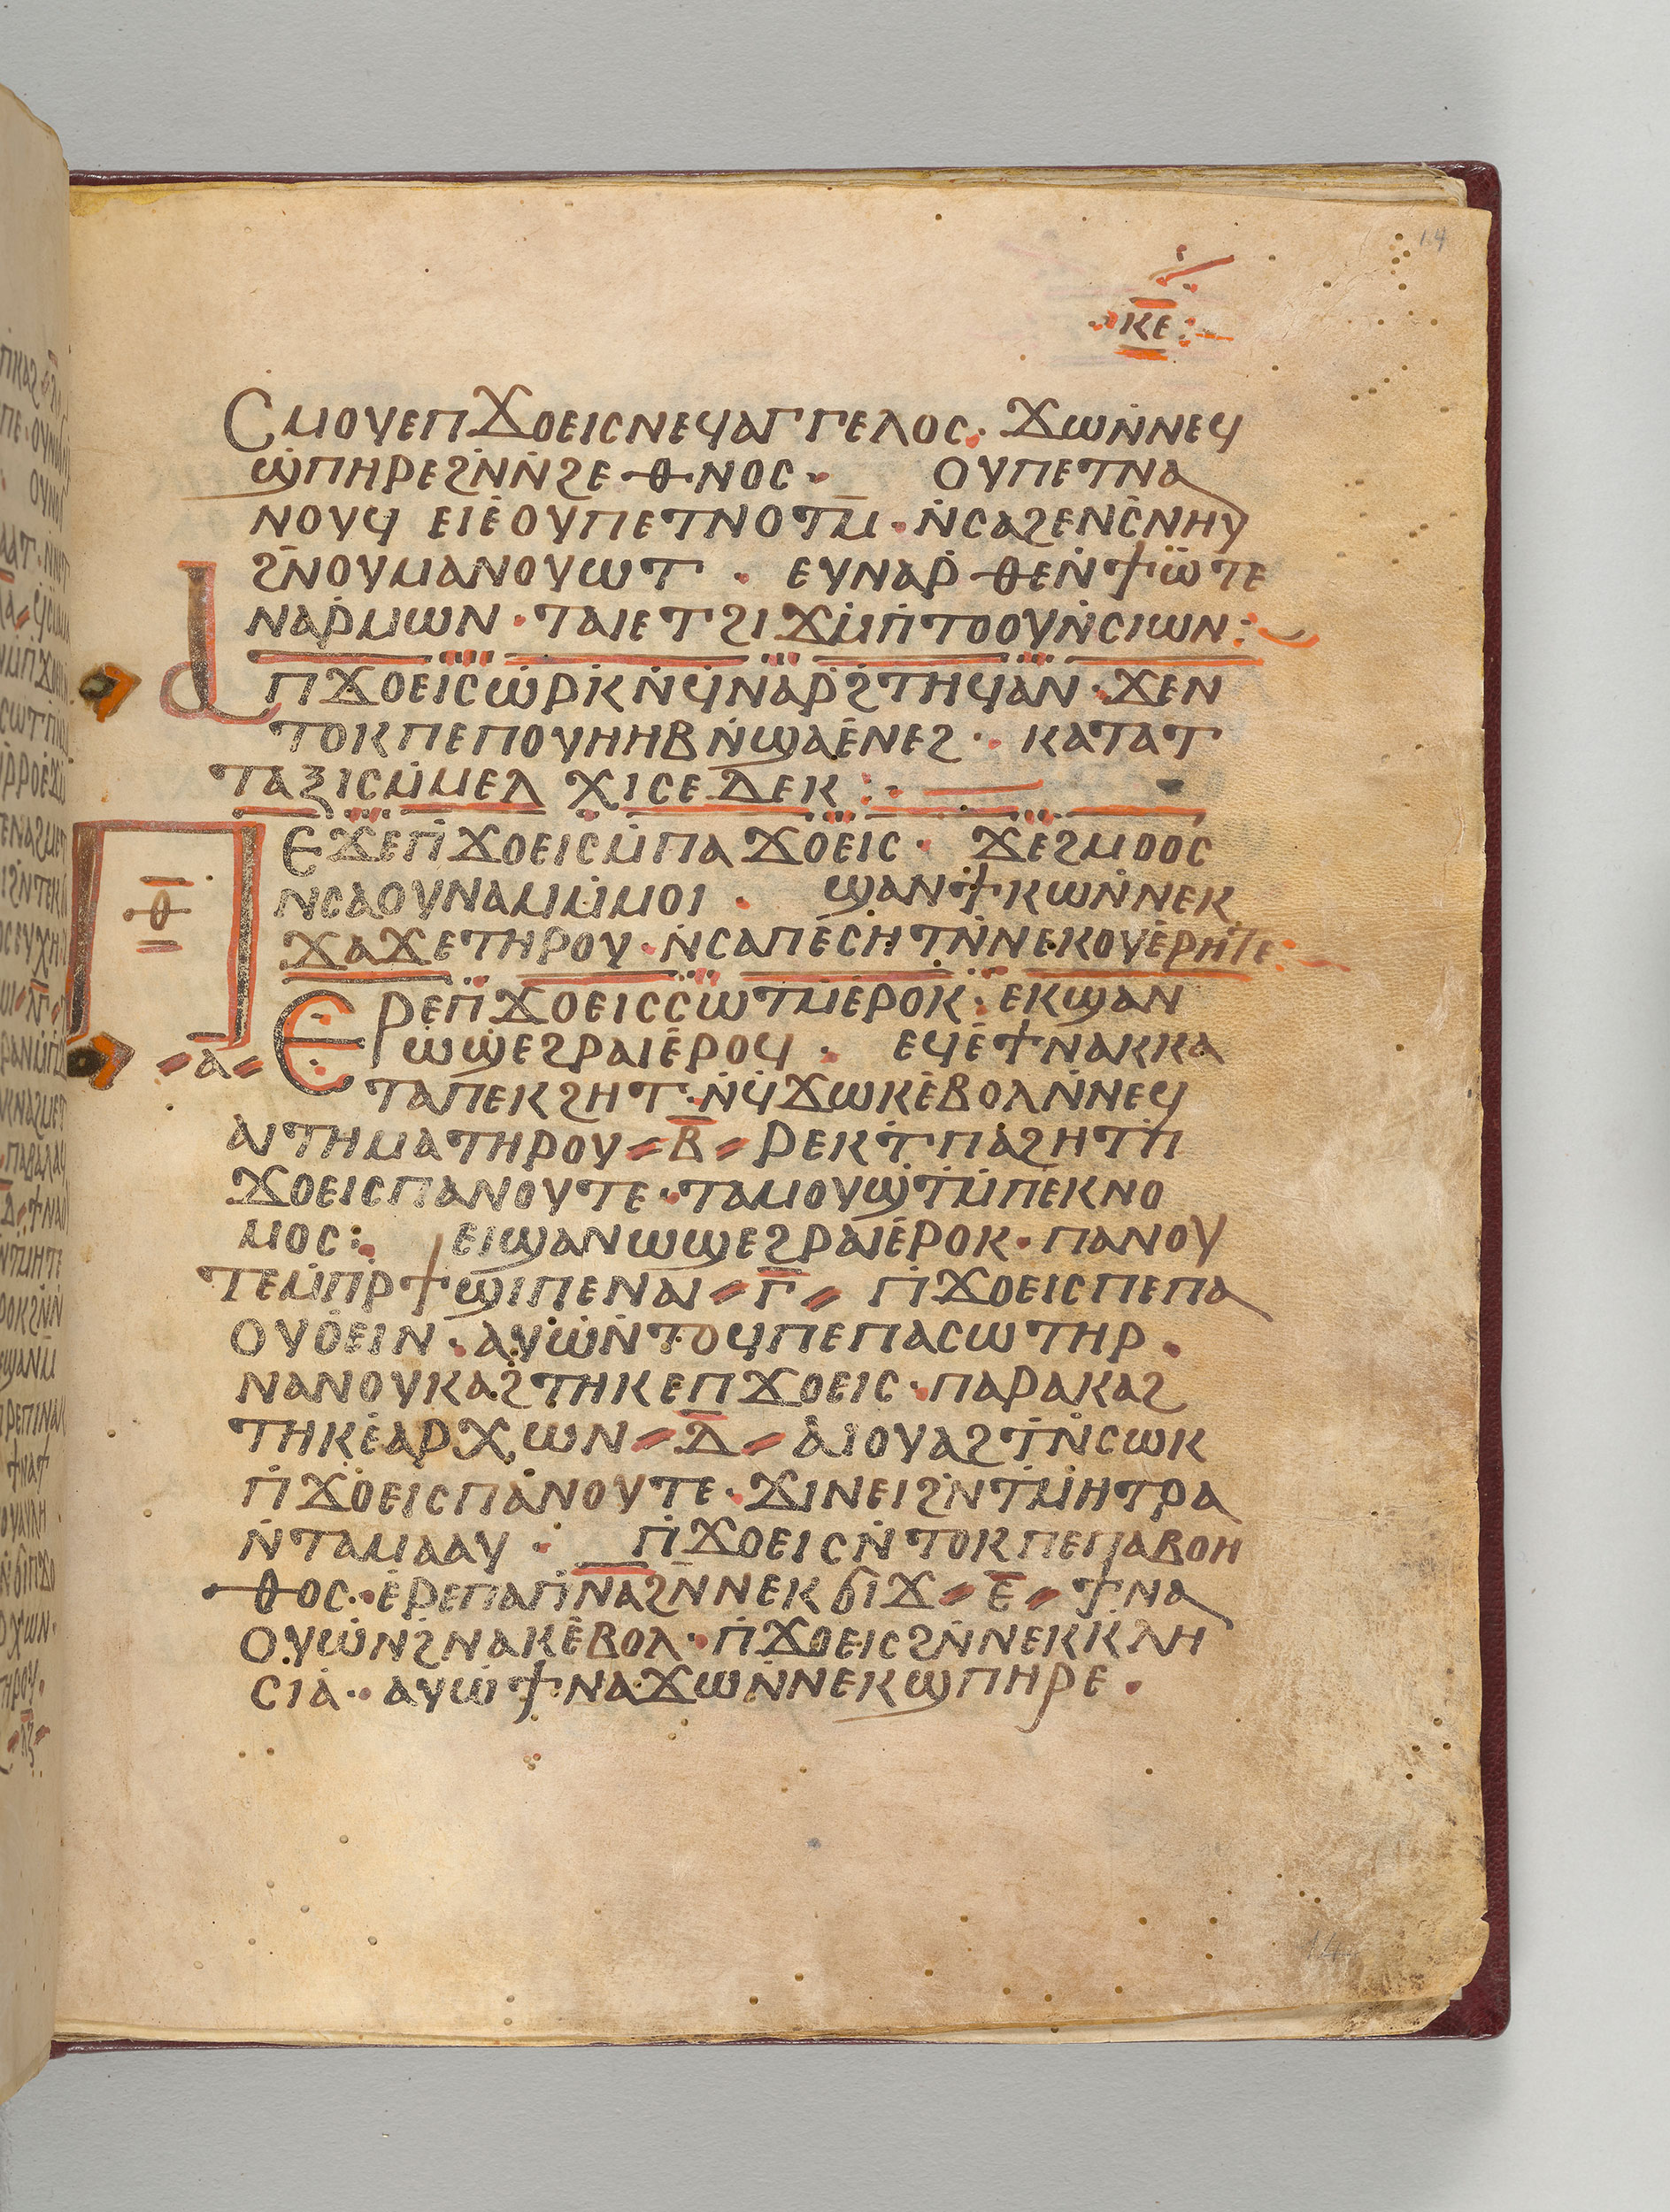 14
ⲕⲉ
Ⲥⲙⲟⲩⲉⲡϫⲟⲉⲓⲥⲛⲉϥⲁⲅⲅⲉⲗⲟⲥ· ϫⲱⲛ̇ⲛⲉϥ
ϣ̇ⲡⲏⲣⲉϩⲛ̇ⲛ̇ϩⲉⲑⲛⲟⲥ· ⲟⲩⲡⲉⲧⲛⲁ
ⲛⲟⲩϥ ⲉⲓⲉ̇ⲟⲩⲡⲉⲧⲛⲟⲧⲙ̅·ⲛ̇ⲥⲁϩⲉⲛⲥ̇ⲛⲏⲩ
ϩⲛ̅ⲟⲩⲙⲁⲛⲟⲩⲱⲧ · ⲉⲩⲛⲁⲣ̇ⲑⲉⲛ̇ϯⲱ̈ⲧⲉ
ⲛⲁⲣ̇ⲙⲱⲛ·ⲧⲁⲓⲉⲧϩⲓϫⲙ̇ⲡ̇ⲧⲟⲟⲩⲛ̇ⲥⲓⲱⲛ:
Ⲁⲡϫⲟⲉⲓⲥⲱ̇ⲣⲕⲛ̇ϥⲛⲁⲣ̇ϩⲧⲏϥⲁⲛ·ϫⲉⲛ
ⲧⲟⲕⲡⲉⲡⲟⲩⲏⲏⲃⲛ̇ϣⲁⲉ̇ⲛⲉϩ· ⲕⲁⲧⲁⲧ
ⲧⲁⲝⲓⲥⲙ̇ⲙⲉⲗⲭⲓⲥⲉⲇⲉⲕ:
Ⲡⲉϫⲉⲡ̇ϫⲟⲉⲓⲥⲙ̇ⲡⲁϫⲟⲉⲓⲥ· ϫⲉϩⲙⲟⲟⲥ
ⲑ̅
ⲛⲥⲁⲟⲩⲛⲁⲙⲙ̇ⲙⲟⲓ · ϣⲁⲛϯⲕⲱⲛ̇ⲛⲉⲕ
ϫⲁϫⲉⲧⲏⲣⲟⲩ·ⲛ̇ⲥⲁⲡⲉ̇ⲥⲏⲧⲛ̇ⲛⲉⲕⲟⲩⲉ̇ⲣⲏⲧⲉ
Ⲉⲣⲉⲡ̇ϫⲟⲉⲓⲥⲥⲱⲧⲙⲉⲣⲟⲕ·ⲉⲕϣⲁⲛ
ⲁ̅ ⲱ̇ϣ̇ⲉϩⲣⲁⲓⲉ̇ⲣⲟϥ · ⲉϥⲉ̇ϯⲛⲁⲕⲕⲁ
ⲧⲁⲡⲉⲕϩⲏⲧ·ⲛ̇ϥϫⲱⲕⲉ̇ⲃⲟⲗⲛ̇ⲛⲉϥ
ⲁⲓⲧⲏⲙⲁⲧⲏⲣⲟⲩ ⲃ̅ ⲣⲉⲕⲧ̇ⲡⲁϩⲏⲧⲡ̇
ϫⲟⲉⲓⲥⲡⲁⲛⲟⲩⲧⲉ·ⲧⲁⲙⲟⲩϣⲧ̇ⲙ̇ⲡⲉⲕⲛⲟ
ⲙⲟⲥ: ⲉⲓϣⲁⲛⲱϣⲉϩⲣⲁⲓⲉ̇ⲣⲟⲕ·ⲡⲁⲛⲟⲩ
ⲧⲉⲙ̇ⲡ̇ⲣϯϣⲓⲡⲉⲛⲁⲓ ⲅ̅ ⲡ̇ϫⲟⲉⲓⲥⲡⲉⲡⲁ
ⲟⲩⲟ̇ⲉⲓⲛ·ⲁⲩⲱⲛ̇ⲧⲟϥⲡⲉⲡⲁⲥⲱⲧⲏⲣ·
ⲛⲁⲛⲟⲩⲕⲁϩⲧⲏⲕⲉⲡϫⲟⲉⲓⲥ·ⲡⲁⲣⲁⲕⲁϩ
ⲧⲏⲕⲉ̇ⲁⲣⲭⲱⲛ ⲇ̅ ⲁⲓⲟⲩⲁϩⲧ̇ⲛ̇ⲥⲱⲕ
ⲡ̇ϫⲟⲉⲓⲥⲡⲁⲛⲟⲩⲧⲉ·ϫⲓⲛⲉⲓϩⲛ̇ⲧ̇ⲙⲏⲧⲣⲁ
ⲛ̇ⲧⲁⲙⲁⲁⲩ · ⲡ̇ϫⲟⲉⲓⲥⲛ̇ⲧⲟⲕⲡⲉⲡⲁⲃⲟⲏ
ⲑⲟⲥ·ⲉ̇ⲣⲉⲡⲁⲡ̅ⲛ̅ⲁ̅ϩⲛ̅ⲛⲉⲕϭⲓϫ ⲉ̅ ϯⲛⲁ
ⲟⲩⲱ̇ⲛϩⲛⲁⲕⲉ̇ⲃⲟⲗ·ⲡ̇ϫⲟⲉⲓⲥϩⲛ̇ⲛⲉⲕⲕ̇ⲗⲏ
ⲥⲓⲁ̇·ⲁⲩⲱ̇ϯⲛⲁϫⲱⲛ̇ⲛⲉⲕϣⲡⲏⲣⲉ·